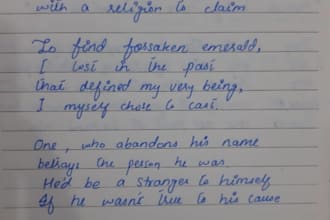 with a religion to claim
To find forsaken emerald,
I lost in the past
that defined my very being,
I myself chose to cast.
One, who abandons his name
betrays the person he was.
He'd be a stranger to himself
If he wasn't true to his cause